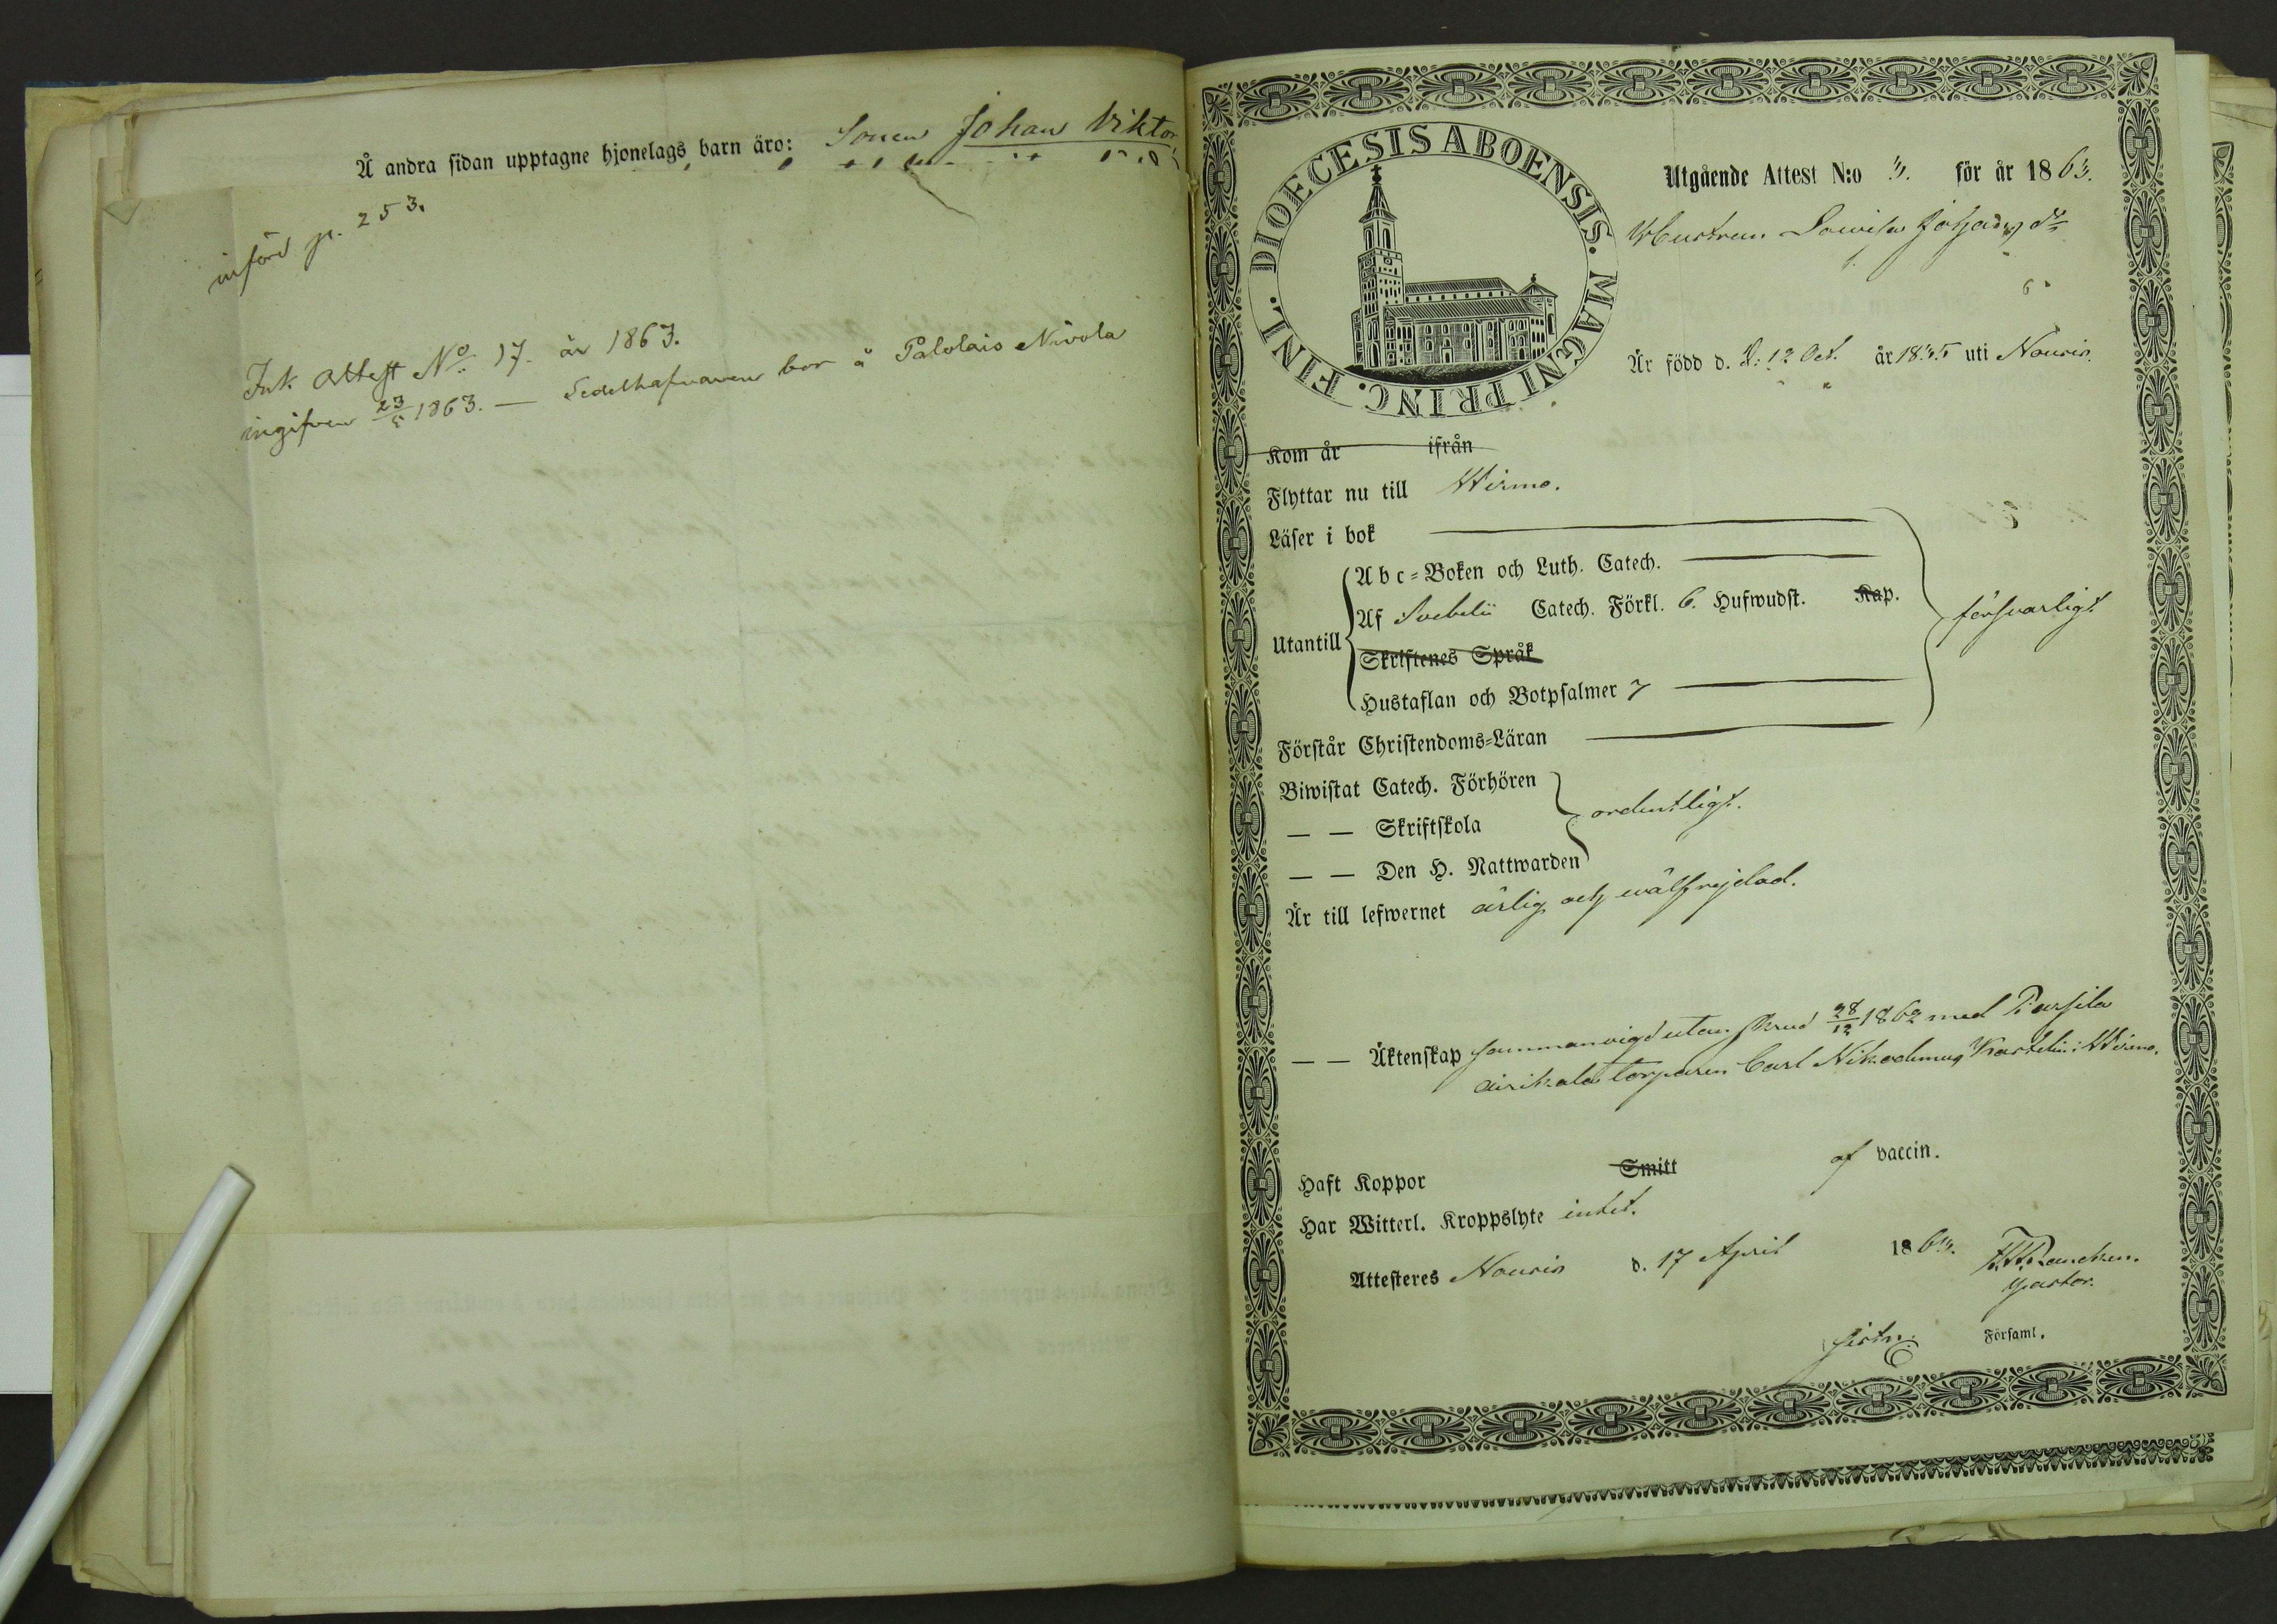 Å andra sidan upptagne hjonelags barn äro: Sonen Johan Viktor
införd p. 253.
Ink. Attest No 17. år 1863.
ingifven 23/5 1863. — Sedelhafvaren bor å Palolais Nivola
DIOECESIS ABOENSIS. MAGNI PRINC. FINL.
Utgående Attest N:o 3. för år 1863.
Hustrun Lovisa
Är född d. d: 12 Oct. år 1835 uti Nousis.
Kom år ifrån
Flyttar nu till Wirmo.
Läser i bok
Abc-Boken och Luth. Catech.
Af Svebelii Catech. Förkl. 6. Hufwudst. Kap.
försvarligt
Utantill
Skriftenes Språk
Hustaflan och Botpsalmer 7
Förstår Christendoms-Läran
Biwistat Catech. Förhören
— — Skriftskola
ordentligt.
— — Den H. Nattwarden
Är till lefwernet ärlig och wälfrejdad.
— — Äktenskap sammanvigd utan 28/12 1862 med
torparen Carl Nikodemus i Wirmo.
Haft Koppor Smitt af vaccin.
Har Witterl. Kroppslyte intet.
Attesteres Nousis d. 17 April 1863.
pastor.
Församl.